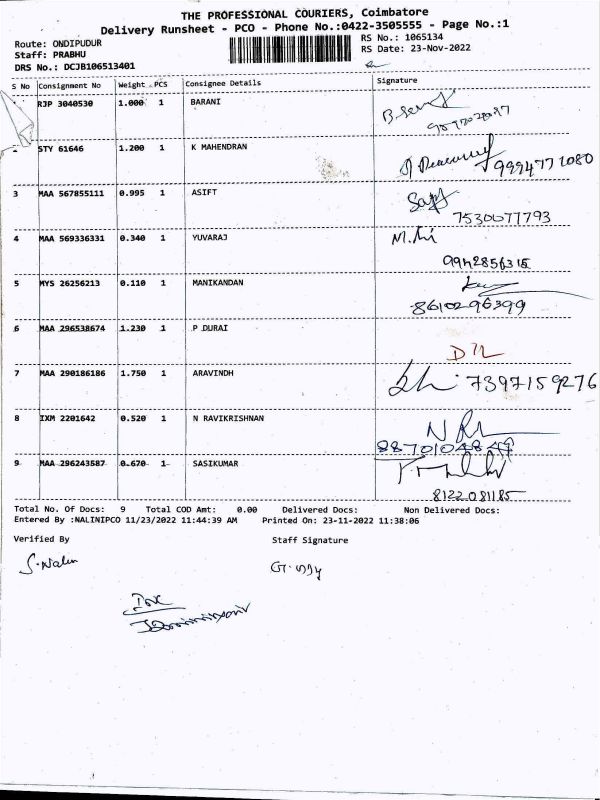 THE PROFESSIONAL COURIERS, Coimbatore
Delivery Runsheet - PCO - Phone No.:0422-3505555 - Page No.:1
Route: ONDIPUDUR
RS No.: 1065134
Staff: PRABHU
RS Date: 23-Nov-2022
DRS No.: DCJB106513401
S No Consignment No Weight PCS Consignee Details Signature
RJP 3040530 1.000 1 BARANI
2 STY 61646 1.200 1 K MAHENDRAN
9994771080
3 MAA 567855111 0.995 1 ASIFT
7530077793
4 MAA 569336331 0.340 1 YUVARAJ
9942856315
5 MYS 26256213 0.110 1 MANIKANDAN
8610296399
6 MAA 296538674 1.230 1 P DURAI
7 MAA 290186186 1.750 1 ARAVINDH
7397159276
8 IXM 2201642 0.520 1 N RAVIKRISHNAN
9 MAA 296243587 0.670 1 SASIKUMAR
8122081185
Total No. Of Docs: 9 Total COD Amt: 0.00 Delivered Docs: Non Delivered Docs:
Entered By :NALINIPCO 11/23/2022 11:44:39 AM Printed On: 23-11-2022 11:38:06
Verified By Staff Signature
S. Nalin